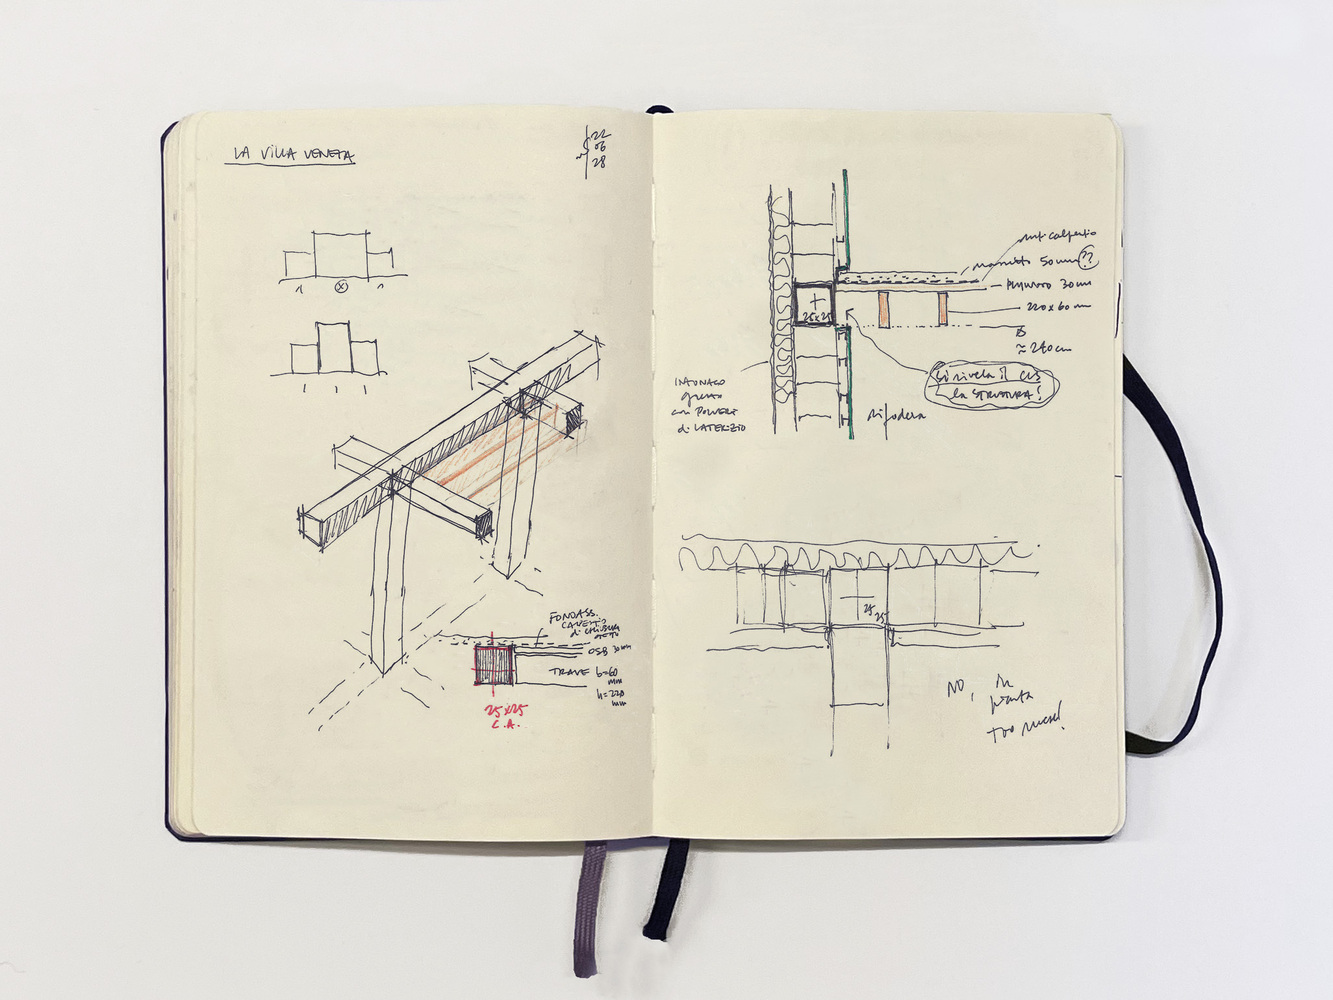 LA VILLA VENETA
22
06
28
FONDASS.
di CHIUSURA
OSB 30 mm
TRAVE b=60
mm
h=220
mm
25x25
C.A.
anticalpestio
massetto 50mm ??
30mm
220x60 mm
≈ 240 cm
25x25
si rivela il CLS
la STRUTTURA!
INTONACO
grosso
con POLVERI
di LATERIZIO
rifodera
25
25
NO, in
pianta
too much!